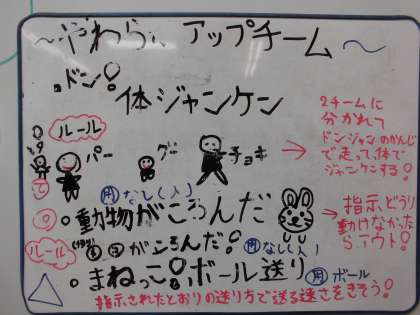 ～やわらかアップチーム～
ドン!
体ジャンケン
ルール
パー
グー
チョキ
2チームに
分かれて
ドンジャンのかんじ
で走って、体で
ジャンケンする!
用 なし(人)
動物がころんだ
指示どうり
動けなかった
らアウト!
ルール
がころんだ!
用 なし(人)
まねっこ!ボール送り
用 ボール
指示されたとおりの送り方で送る速さをきそう!